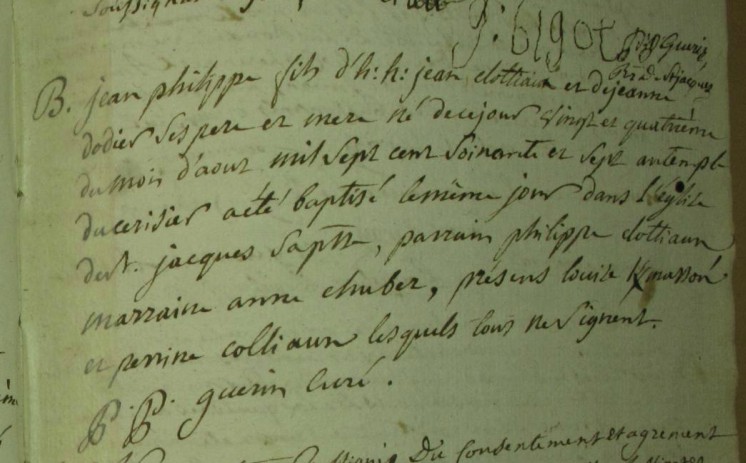 soussigné
P: bigot
P. J. Guerin
B. jean philippe fils d'h: h: jean clottiaux et de jeanne
dodier ses pere et mere né de ce jour vingt et quatrième
du mois d'aout mil sept cent soixante et sept au temple
du cerisier a été baptisé le même jour dans l'église
de st. jacques , parrain philippe
marraine anne chubert, présens louise massoné
et perrine colliaux lesquels tous ne signent.
P. P. guerin curé.
Du Consentement et agrement